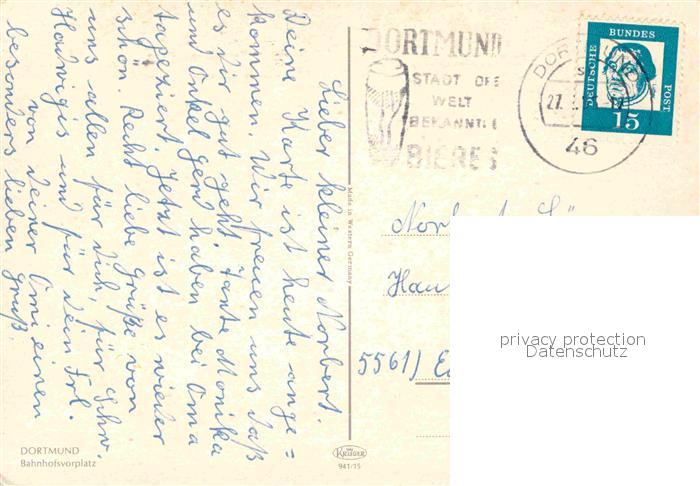 Lieber kleiner Norbert.
Deine Karte ist heute ange=
kommen. Wir freuen uns daß
es dir gut geht. Tante Monika
und Onkel Gerd haben bei Oma
tapeziert. Jetzt ist es wieder
schön. Recht liebe Grüße von
uns allen für dich, für Schw.
Hadvigis und für dein Frl.
von deiner Omi einen
besonders lieben Gruß.
DORTMUND
Bahnhofsvorplatz
Made in Western Germany
KRÜGER
941/15
DORTMUND
STADT DER
WELT
BEKANNTEN
BIERES
DORTMUND
27.
46
DEUTSCHE BUNDES POST
15
Norbert
Hau
5561)
privacy protection
Datenschutz